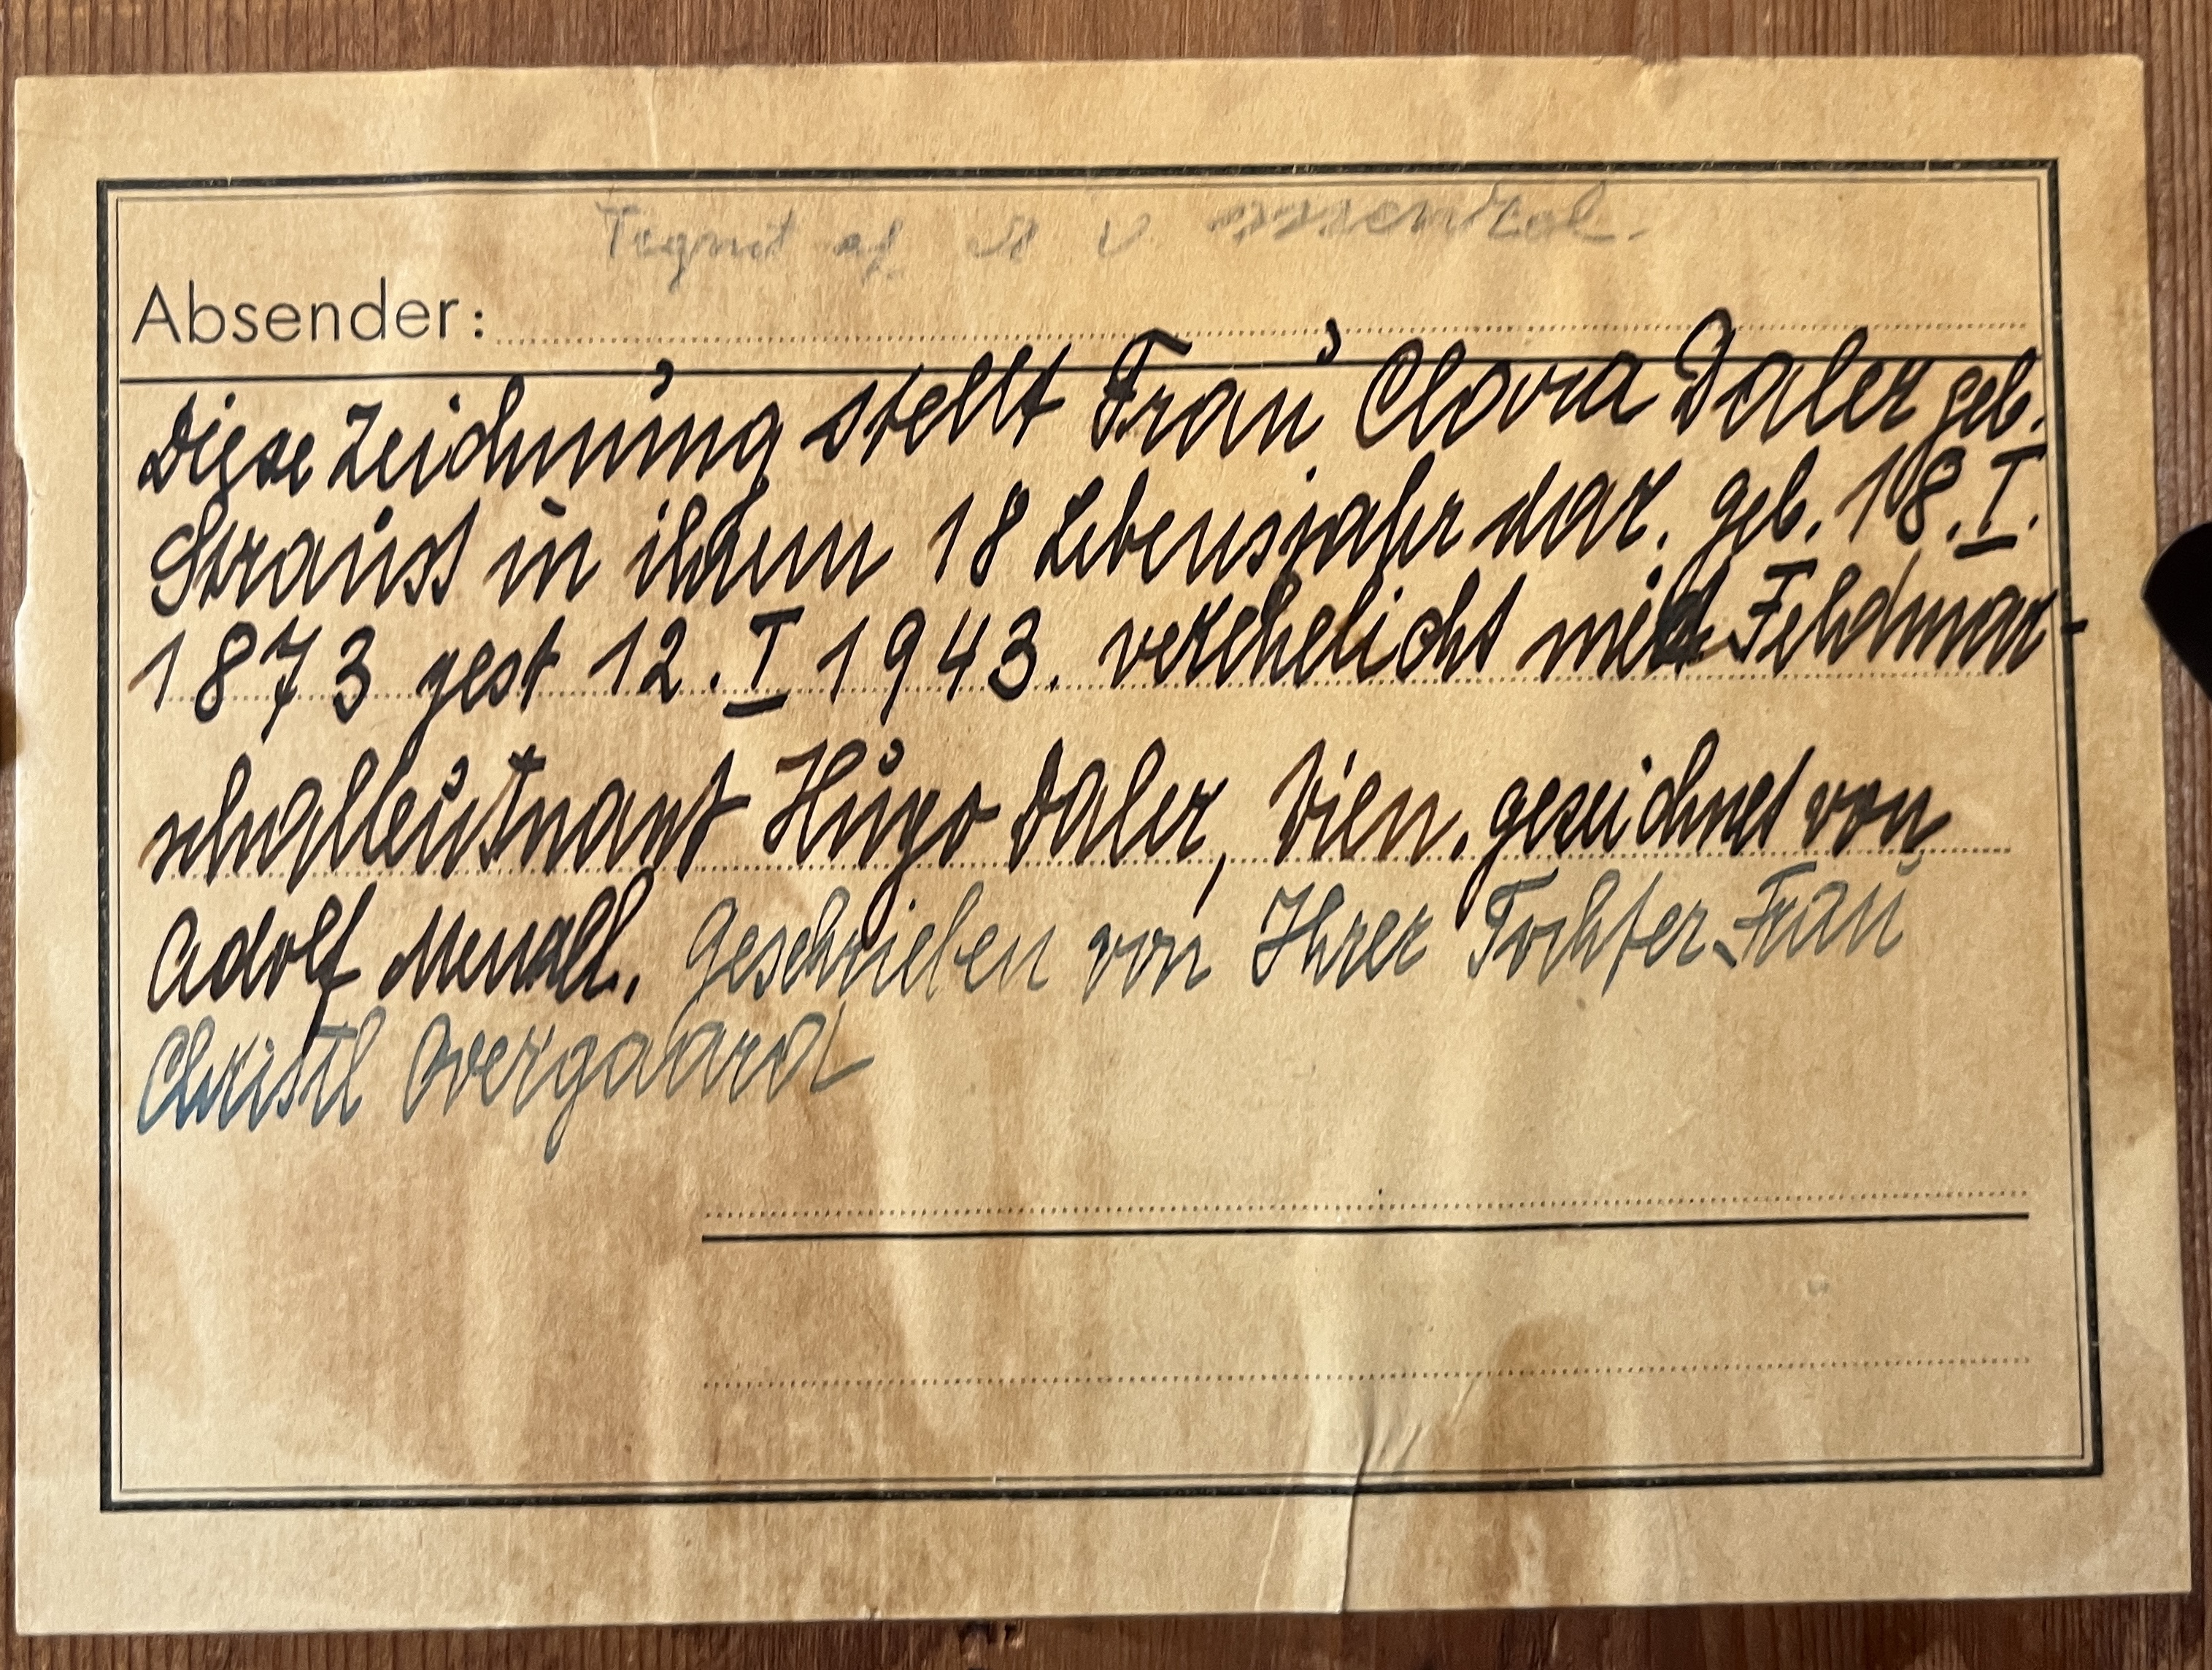 Tegnet af
Absender:
Diese Zeichnung stellt Frau Clara Daler geb.
Strauss in ihrem 18 Lebensjahr dar. geb. 18. I.
1873 gest 12. I 1943. verehelicht mit Feldmar-
schalleutnant Hugo Daler, Wien. gezeichnet von
Adolf Menzell. Geschrieben von Ihrer Tochter Frau
Christl Overgaard